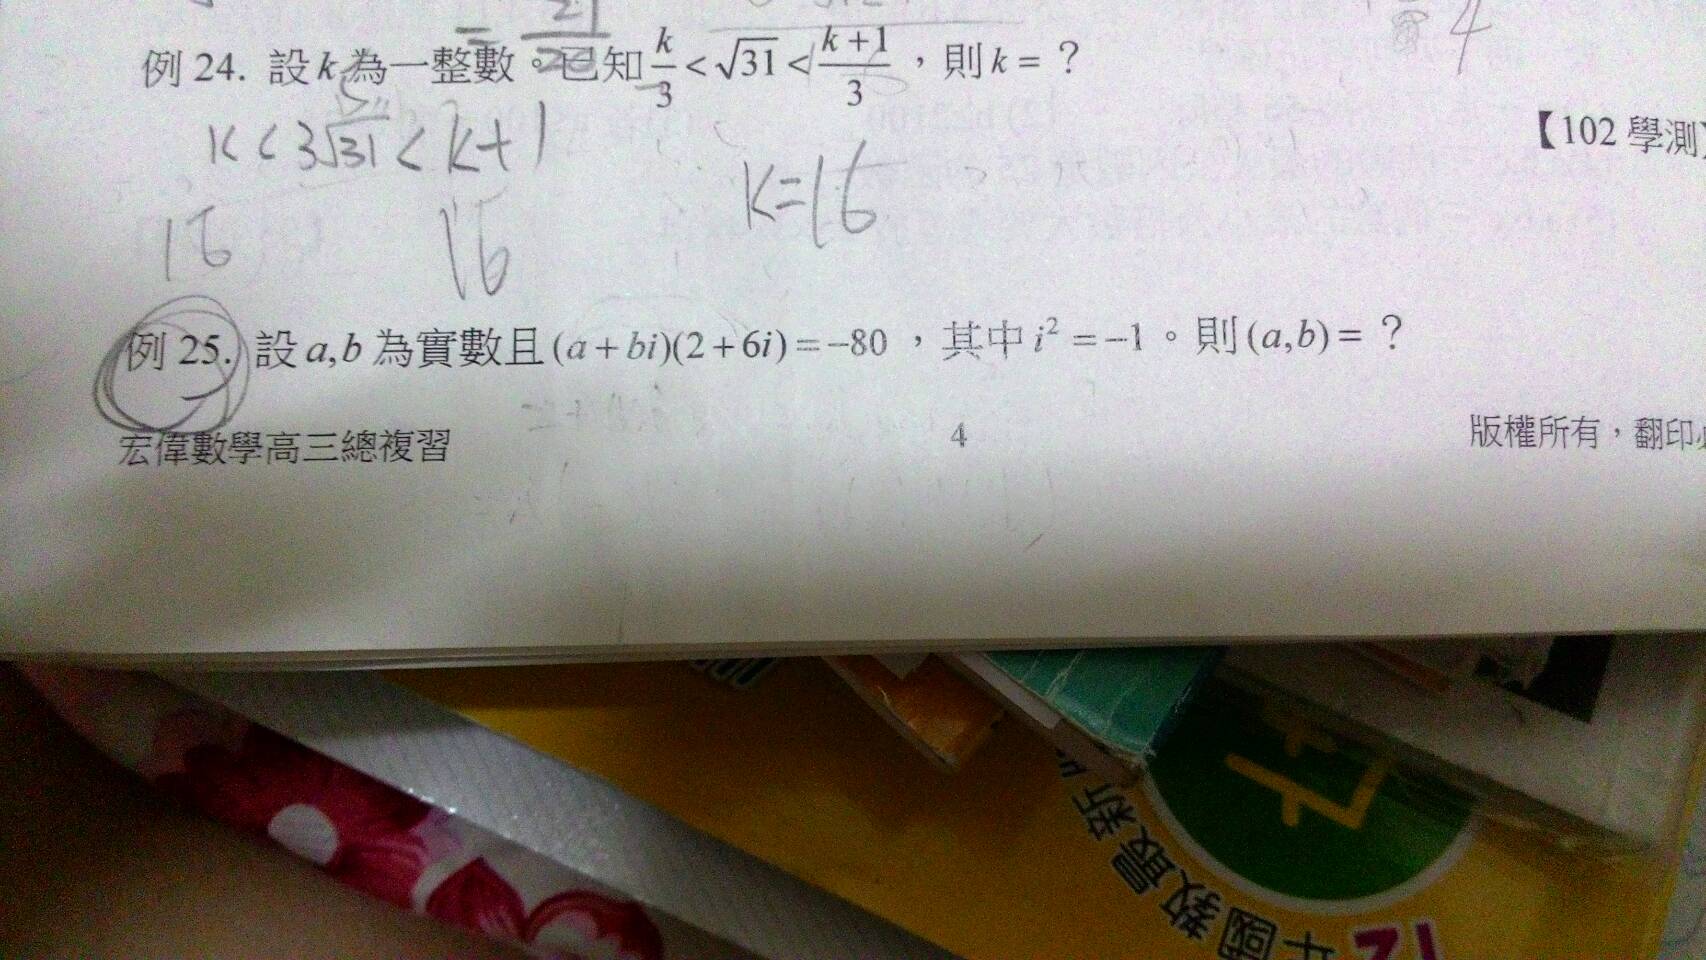 例 24. 設 k 為一整數。已知 k/3 < √31 < (k+1)/3，則 k = ？
【102 學測】
K < 3√31 < k+1
K=16
16
例 25. 設 a,b 為實數且 (a+bi)(2+6i) = −80，其中 i² = −1。則 (a,b) = ？
宏偉數學高三總複習
4
版權所有，翻印
最新
國教